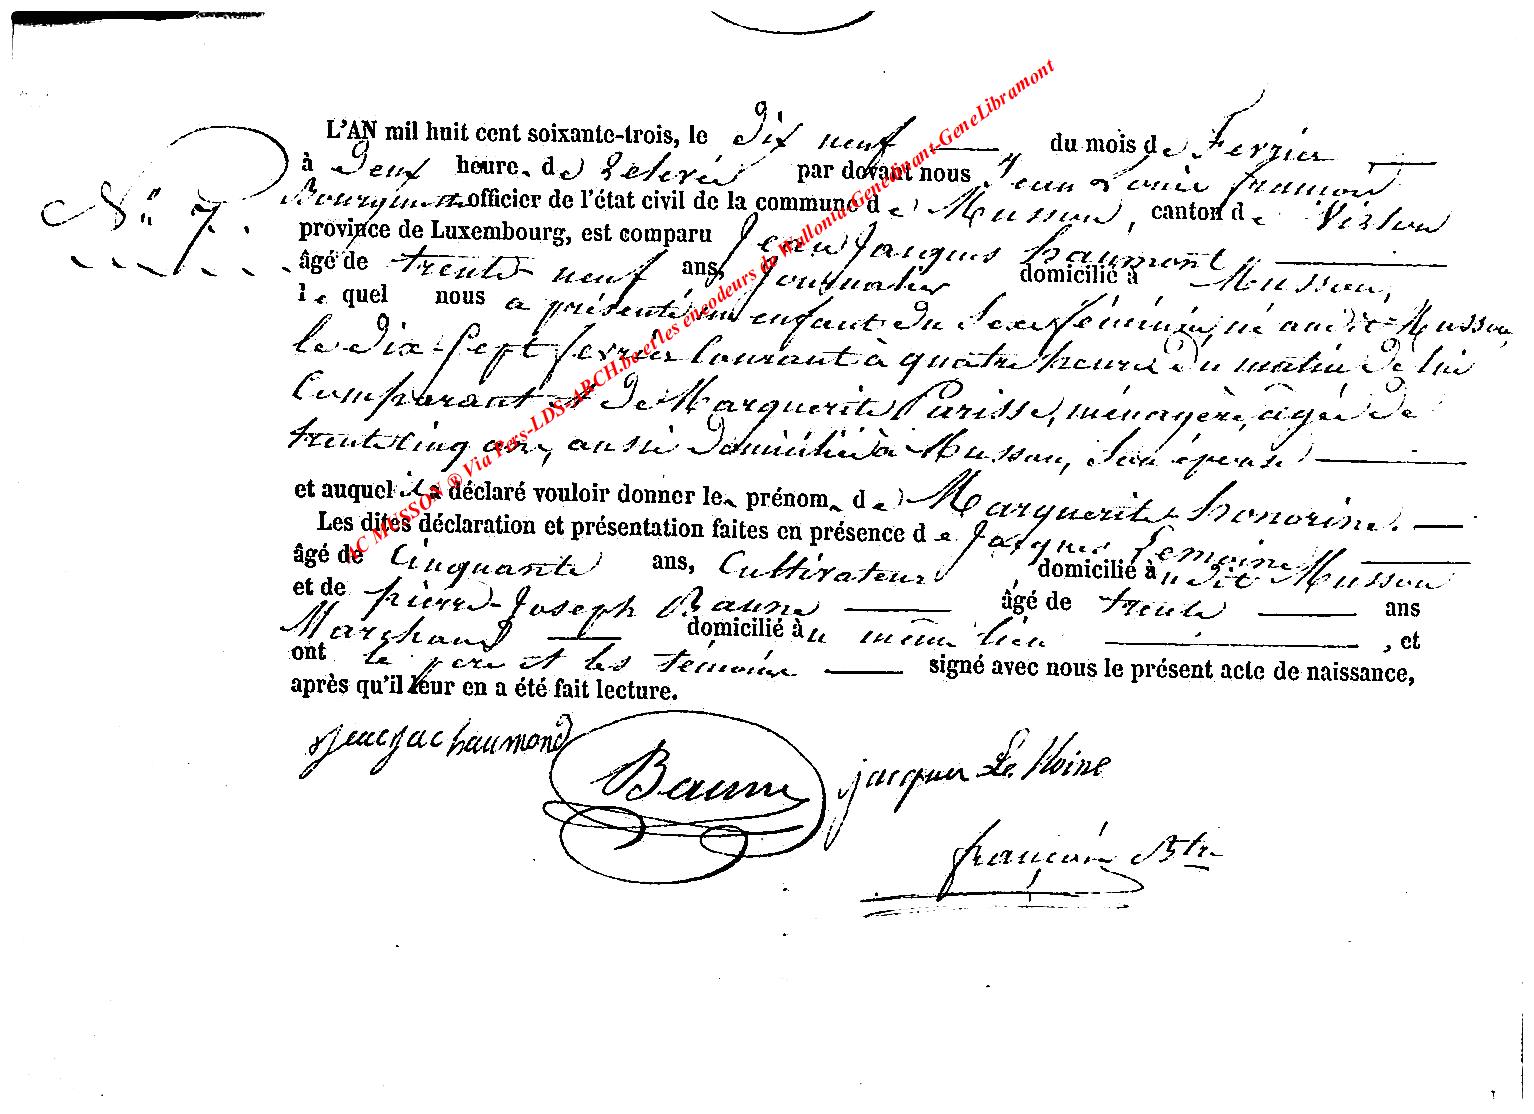 L'AN mil huit cent soixante-trois, le Dix neuf du mois de Fevrier
N° 7.
à Deux heure de relevée par devant nous Jean Louis françois
Bourgmestre officier de l'état civil de la commune de Musson, canton de Virton
province de Luxembourg, est comparu Jean Jacques haumont
âgé de trente neuf ans, Journalier domicilié à Musson,
le quel nous a présenté un enfant du Sexe féminin, né audit Musson
le dix-Sept fevrier Courant à quatre heure du matin de lui
Comparant et de Marguerite Parisse, ménagère, agée de
trente cinq ans, aussi domicilié à Musson, Son épouse
et auquel il a déclaré vouloir donner le prénom de Marguerite honorine.
Les dites déclaration et présentation faites en présence de Jacques Lemoine
âgé de Cinquante ans, Cultivateur domicilié audit Musson
et de pierre-Joseph Baune âgé de trente ans
Marchand domicilié au même lieu , et
ont le pere et les témoins signé avec nous le présent acte de naissance,
après qu'il leur en a été fait lecture.
Jeacque haumond
Baune
jacques Le Moine
françois Btre
AC MUSSON ® Via Pers-LDS-ARCH.be et les encodeurs de Wallonia-Genedinant-GeneLibramont